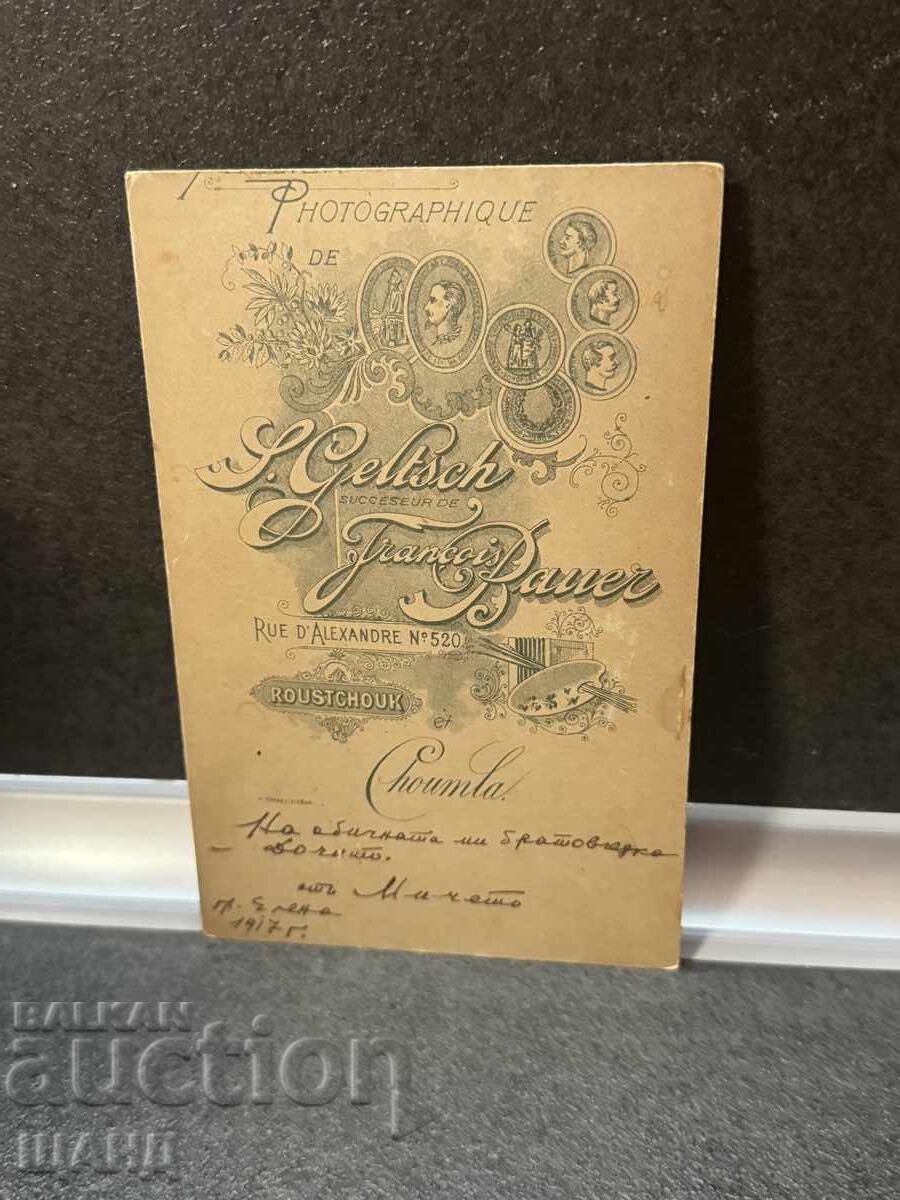 PHOTOGRAPHIQUE
DE
S. Geltsch
SUCCESEUR DE
François Bauer
RUE D'ALEXANDRE Nº 520
ROUSTCHOUK
et
Choumla.
На обичната ми братовчедка
отъ Мичето
гр. Елена
1917 г.
BALKAN
auction
ШАНЛ